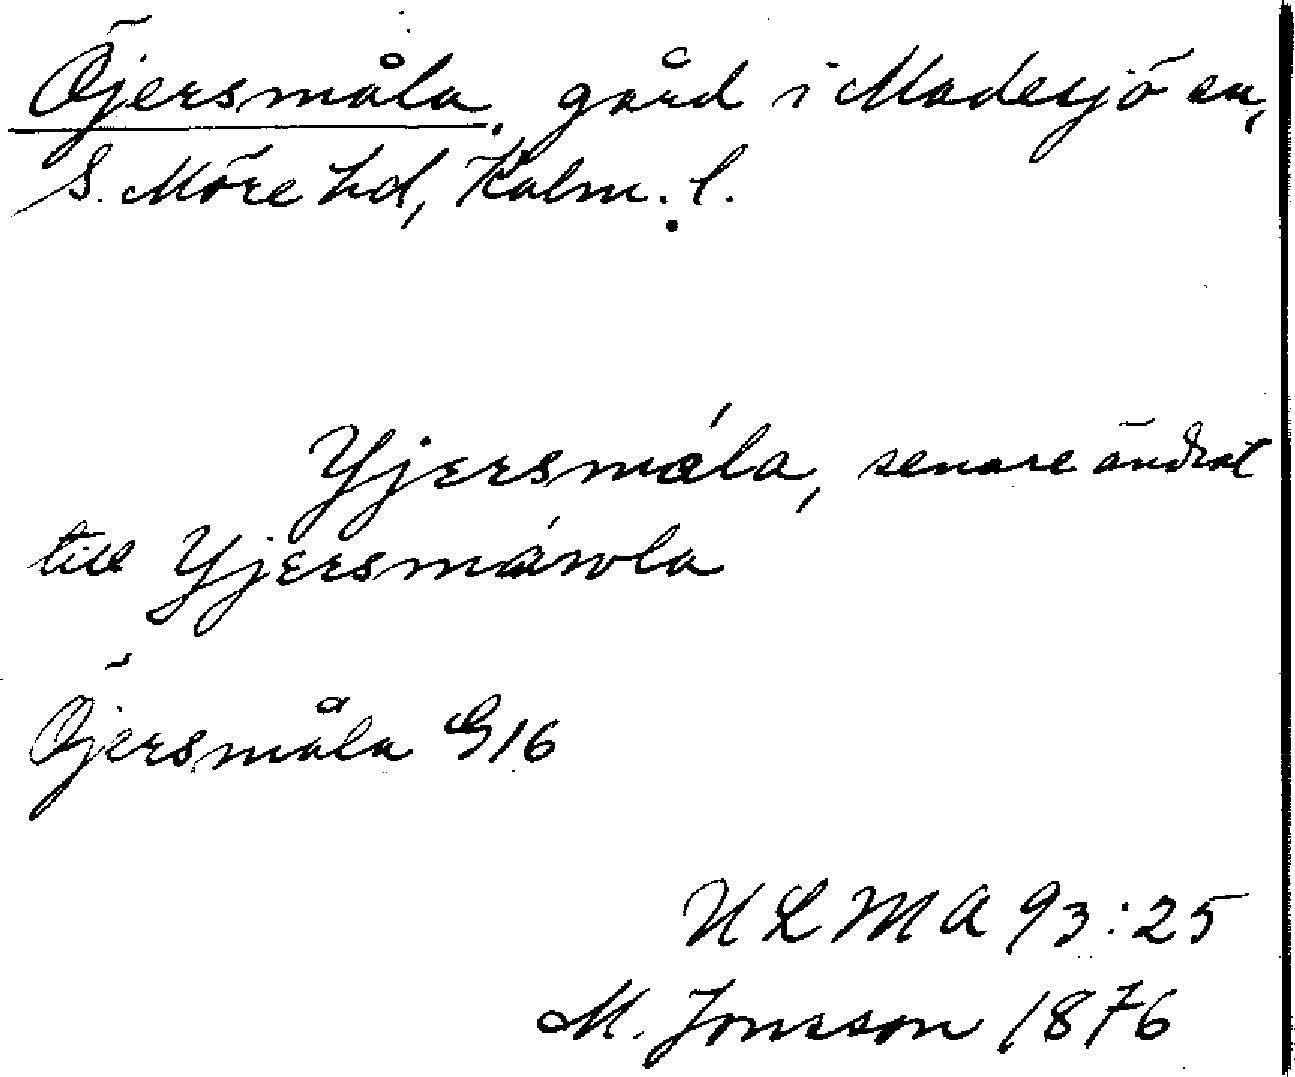 Öjersmåla, gård i Madesjö sn,
S. Möre hd, Kalm. l.
Yjersmála, senare ändrat
till Yjersmáwla
Öjersmåla G16
ULMA 93:25
M. Jonsson 1876